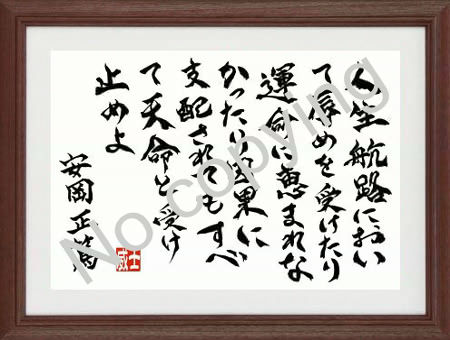 人生航路におい
て辱めを受けたり
運命に恵まれな
かったり因果に
支配されてもすべ
て天命と受け
止めよ
安岡正篤
No copying